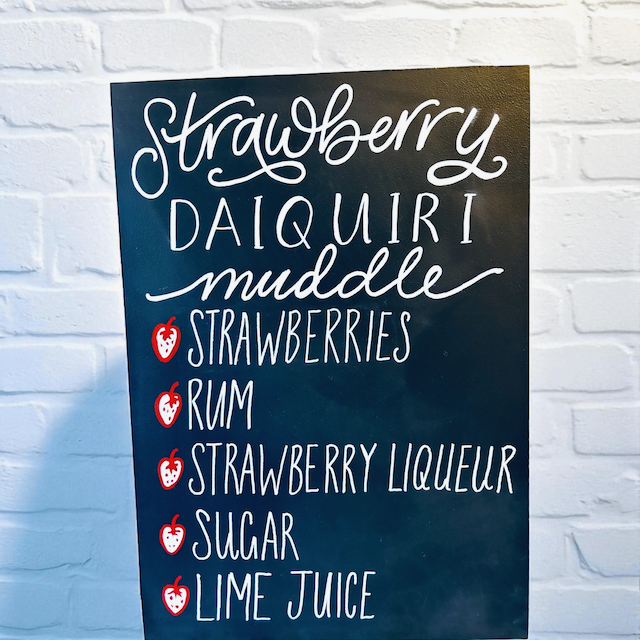 Strawberry
DAIQUIRI
muddle
STRAWBERRIES
RUM
STRAWBERRY LIQUEUR
SUGAR
LIME JUICE